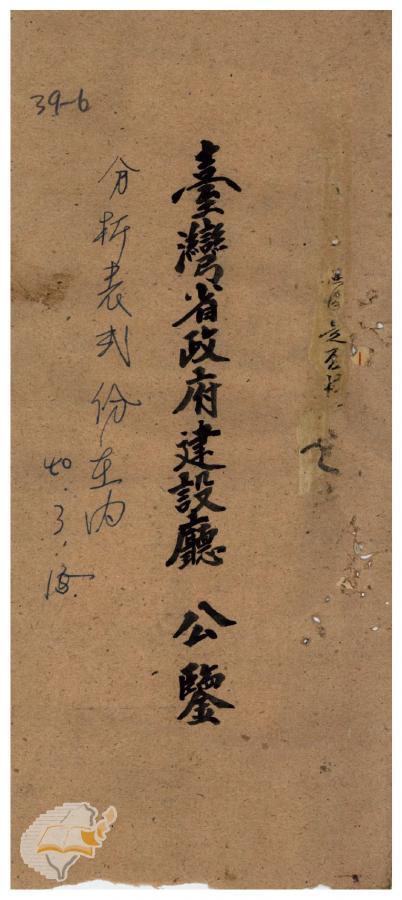 臺灣省政府建設廳 公鑒
39-6
分析表弍份在内
40.3.